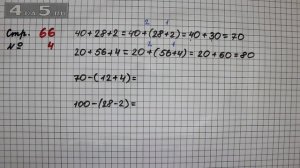 4a5a.ru
Стр. 66
№ 4
2 1
40+28+2=40+(28+2)=40+30=70
2 1
20+56+4=20+(56+4)=20+60=80
70-(12+4)=
100-(28-2)=